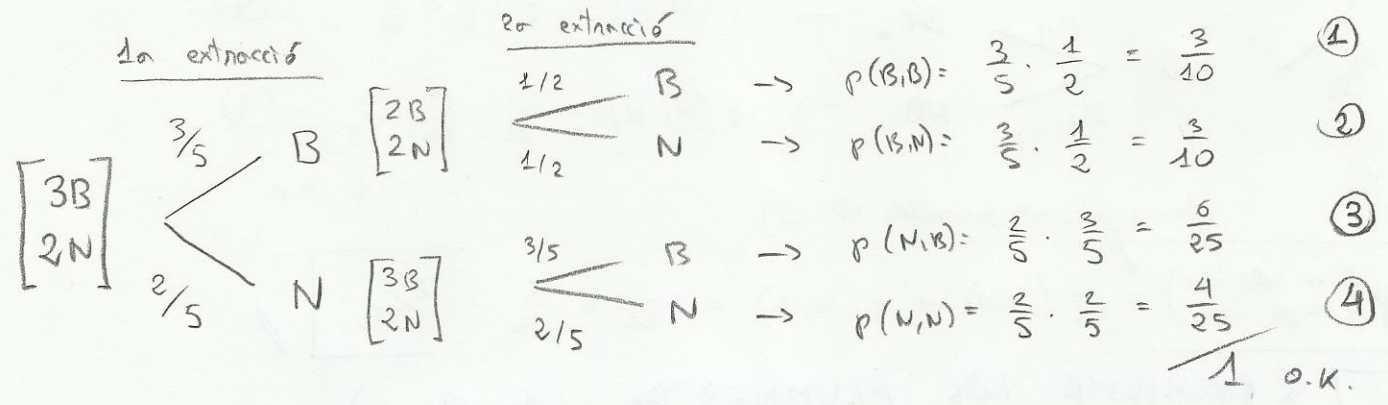 1a extracció
2a extracció
[3B 2N]
3/5 B [2B 2N]
1/2 B → p(B,B)= 3/5 · 1/2 = 3/10 ①
1/2 N → p(B,N)= 3/5 · 1/2 = 3/10 ②
2/5 N [3B 2N]
3/5 B → p(N,B)= 2/5 · 3/5 = 6/25 ③
2/5 N → p(N,N)= 2/5 · 2/5 = 4/25 ④
1 O.K.